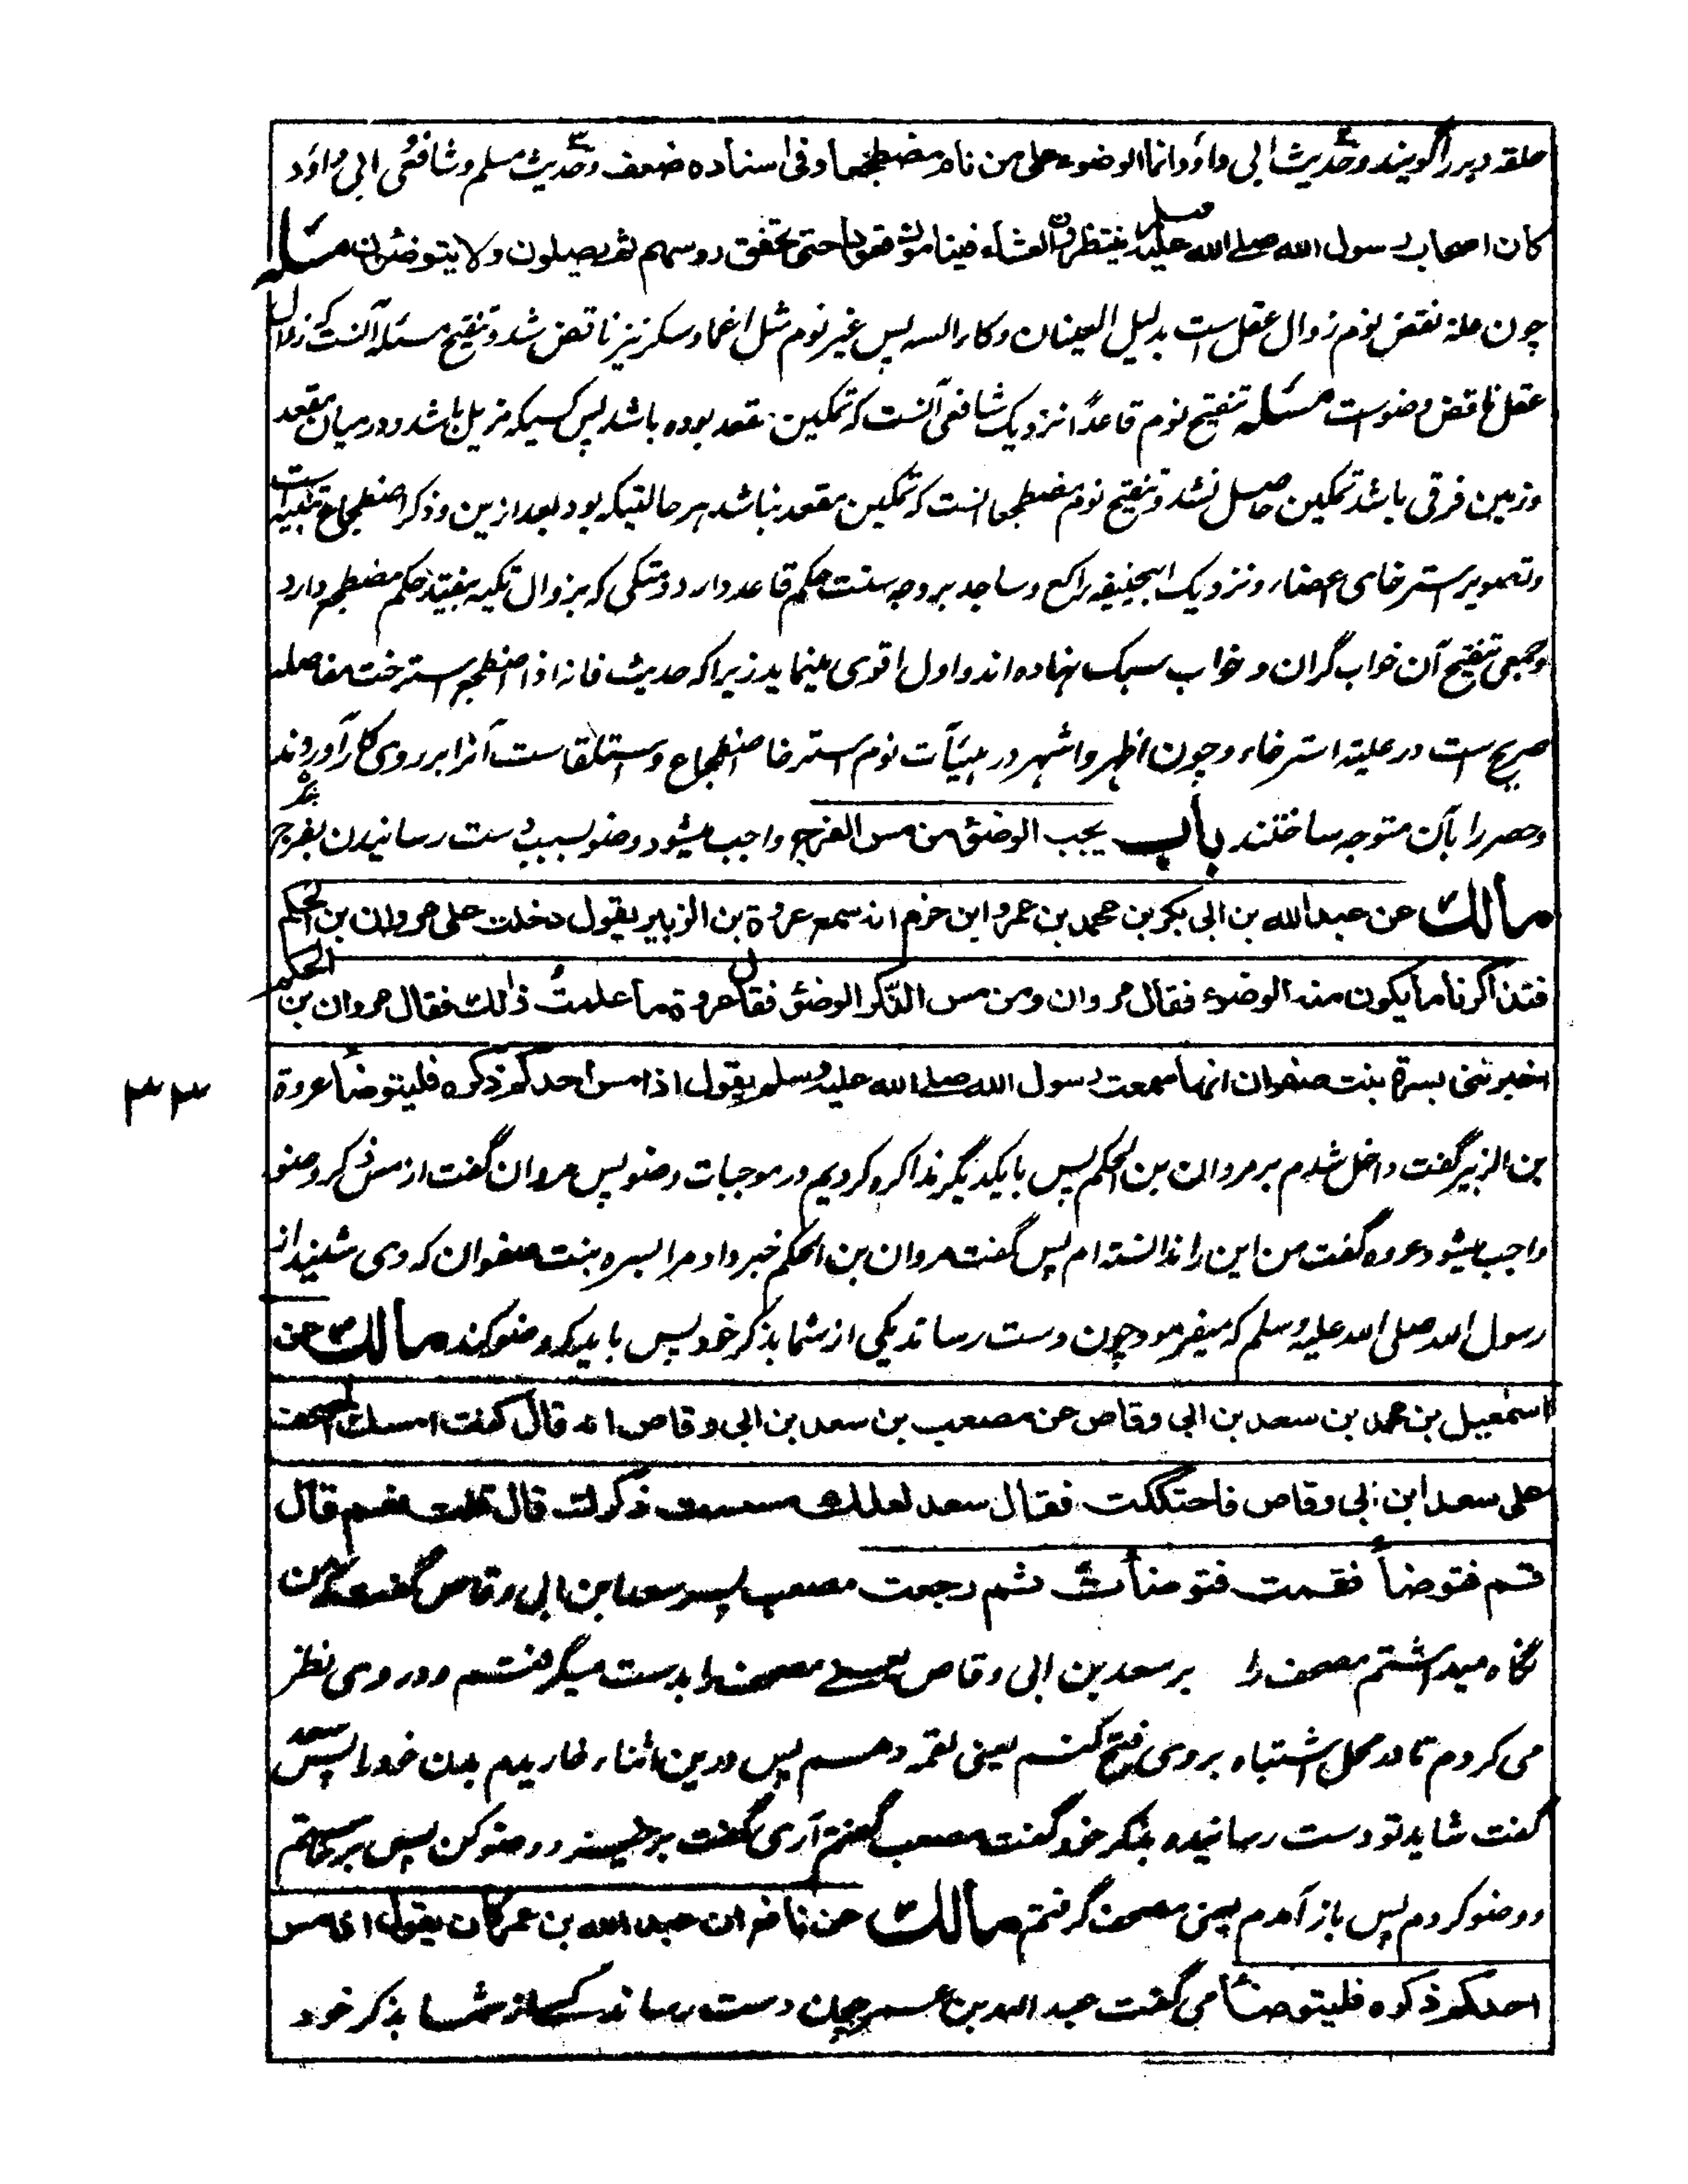 حلقه دبر را گویند و حدیث ابی داؤد انما الوضوء علی من نام مضطجعا و فی اسناده ضعف و حدیث مسلم و شافعی ابی داؤد
کان اصحاب رسول الله صلی الله علیه وسلم ینتظرون العشاء فینامون قعودا حتی تخفق رؤسهم ثم یصلون ولا یتوضئون مسئله
چون علة نقض نوم زوال عقل ست بدلیل العینان وکاء السه پس غیر نوم مثل اغما و سکر نیز ناقض شد و تنقیح مسئله آنست که زوال
عقل ناقض وضوست مسئله تنقیح نوم قاعدًا نزدیک شافعی آنست که تمکین مقعد بوده باشد پس کسیکه هزیل باشد و در میان مقعد
و زمین فرقی باشد تمکین حاصل نشد و تنقیح نوم مضطجعا انست که تمکین مقعد نباشد بهر حالتیکه بود بعد ازین و ذکر اضطجاع تنبیه است
و تصویر استرخای اعضاء و نزدیک ابیحنیفه راکع و ساجد بر وجه سنت حکم قاعد دارد و متکی که بزوال تکیه بیفتد حکم مضطجع دارد
و جمعی تنقیح آن خواب گران و خواب سبک نهاده اند و اول اقوی مینماید زیرا که حدیث فانه اذا اضطجع استرخت مفاصله
صریح ست در علیة استرخاء و چون اظهر و اشهر در هیئآت نوم استرخا اضطجاع و استلقاست آنرا بر روی کار آوردند
و حصر را بآن متوجه ساختند باب یجب الوضوء من مس الفرج واجب میشود وضو بسبب دست رسانیدن بفرج
مالك عن عبدالله بن ابی بکر بن محمد بن عمرو ابن حزم انه سمع عروة بن الزبیر یقول دخلت علی مروان بن الحکم
فتذاکرنا ما یکون منه الوضوء فقال مروان ومن مس الذکر الوضوء فقال عروة ما علمتُ ذالك فقال مروان بن الحکم
اخبرتنی بسرة بنت صفوان انها سمعت رسول الله صلی الله علیه وسلم یقول اذا مس احدکم ذکره فلیتوضأ عروة
بن الزبیر گفت داخل شدم بر مروان بن الحکم پس بایکدیگر مذاکره کردیم در موجبات وضو پس مروان گفت از مس ذکر وضو
واجب میشود عروه گفت من این را ندانسته ام پس گفت مروان بن الحکم خبر داد مرا بسره بنت صفوان که وی شنید از
رسول الله صلی الله علیه وسلم که میفرمود چون دست رساند یکی از شما بذکر خود پس باید که وضو کند مالك عن
اسمعیل بن محمد بن سعد بن ابی وقاص عن مصعب بن سعد بن ابی وقاص انه قال کنت امسك المصحف
علی سعد ابن ابی وقاص فاحتککت فقال سعد لعلك مسست ذکرك قال قلت نعم قال
قم فتوضأ فقمت فتوضأت ثم رجعت مصعب پسر سعد ابن ابی وقاص گفت که من
نگاه میداشتم مصحف را بر سعد بن ابی وقاص یعنی مصحف را بدست میگرفتم و در وی نظر
می کردم تا در محل اشتباه بر وی فتح کنم یعنی لقمه دهم پس درین اثناء خاریدم بدن خود را پس سعد
گفت شاید تو دست رسانیده بذکر خود گفت مصعب گفتم آری گفت برخیز و وضو کن پس برخاستم
و وضو کردم پس باز آمدم یعنی مصحف گرفتم مالك عن نافع ان عبد الله بن عمر کان یقول اذا مس
احدکم ذکره فلیتوضأ می گفت عبد الله بن عمر چون دست رساند کسی از شما بذکر خود
۳۳